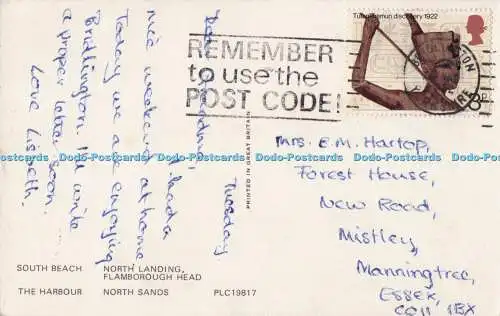 Tuesday
Dear Grandma, I had a
nice weekend at home
Today we are enjoying
Bridlington. I'll write
a proper letter soon....
Love Lisbeth.
REMEMBER
to use the
POST CODE!
Tutankhamun discovery 1922
3p
PRINTED IN GREAT BRITAIN
Mrs. E.M. Hartop,
Forest House,
New Road,
Mistley,
Manningtree,
ESSEX,
CO11 1BX
Dodo-Postcards Dodo-Postcards Dodo-Postcards Dodo-Postcards Dodo-Postcards Dodo-Postcards Dodo-Postcards
SOUTH BEACH NORTH LANDING,
FLAMBOROUGH HEAD
THE HARBOUR NORTH SANDS PLC19817